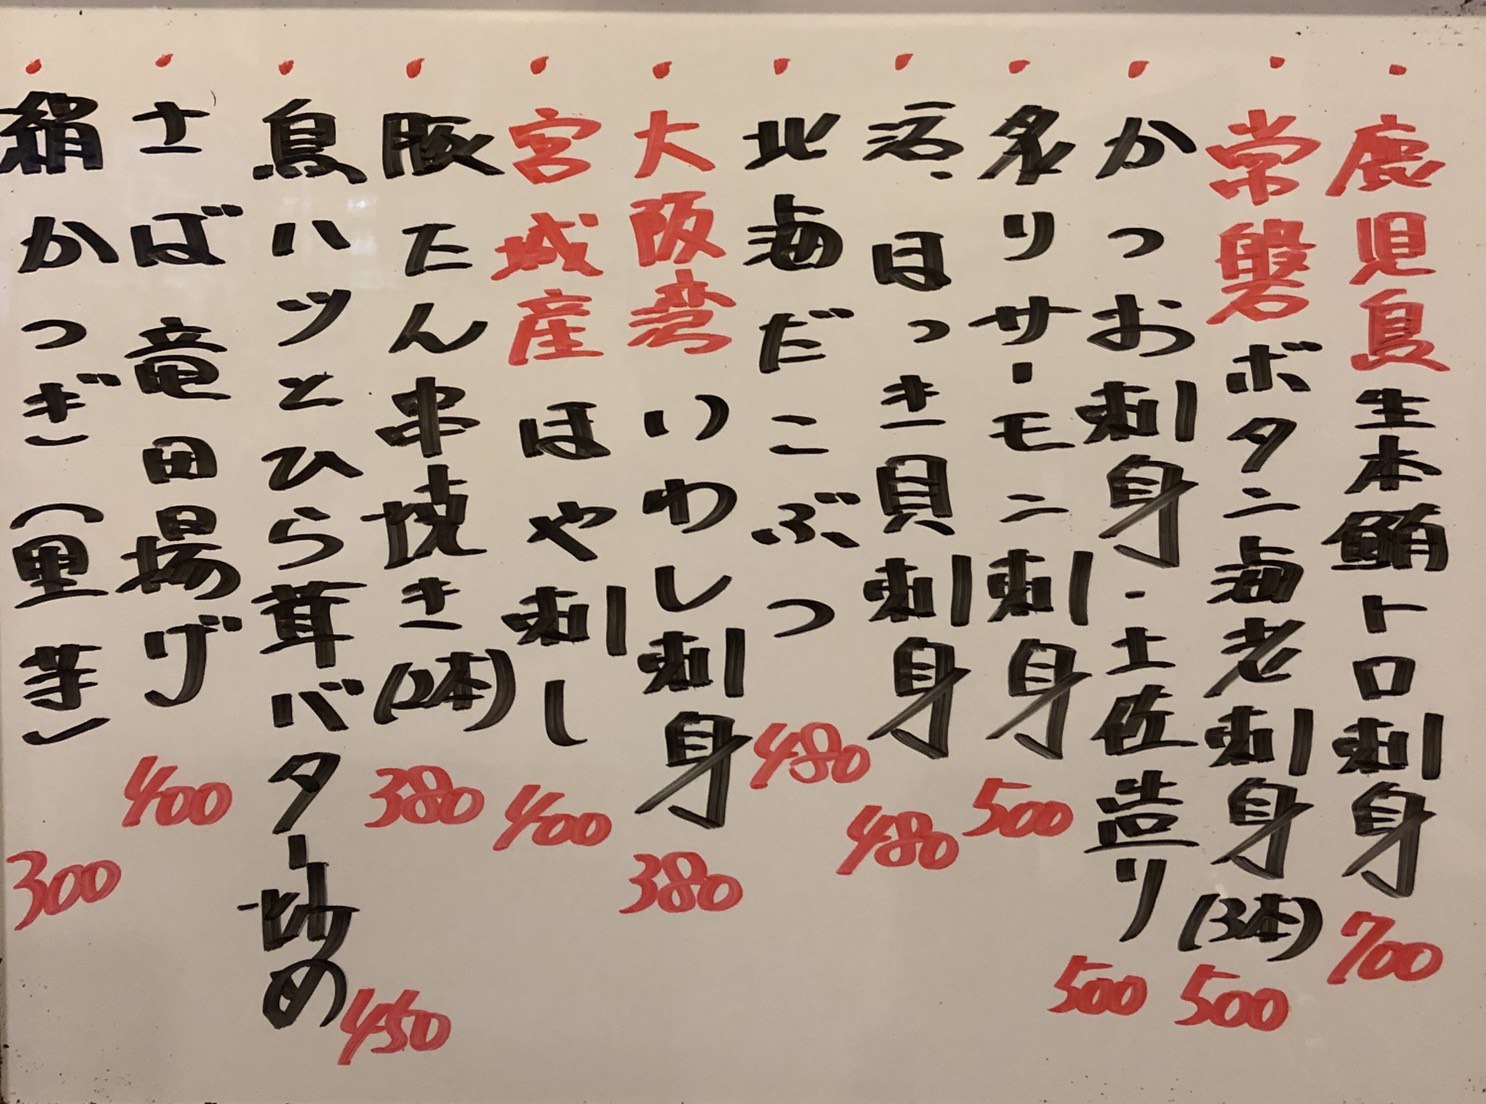 鹿児島生本鮪トロ刺身 700
常磐ボタン海老刺身(3本) 500
かつお刺身・土佐造り 500
炙りサーモン刺身 500
活、ほっき貝刺身 480
北海だこぶつ 480
大阪湾いわし刺身 380
宮城産ほや刺し 400
豚たん串焼き(2本) 380
鳥ハツとひら茸バター炒め 450
さば竜田揚げ 400
絹かつぎ(里芋) 300